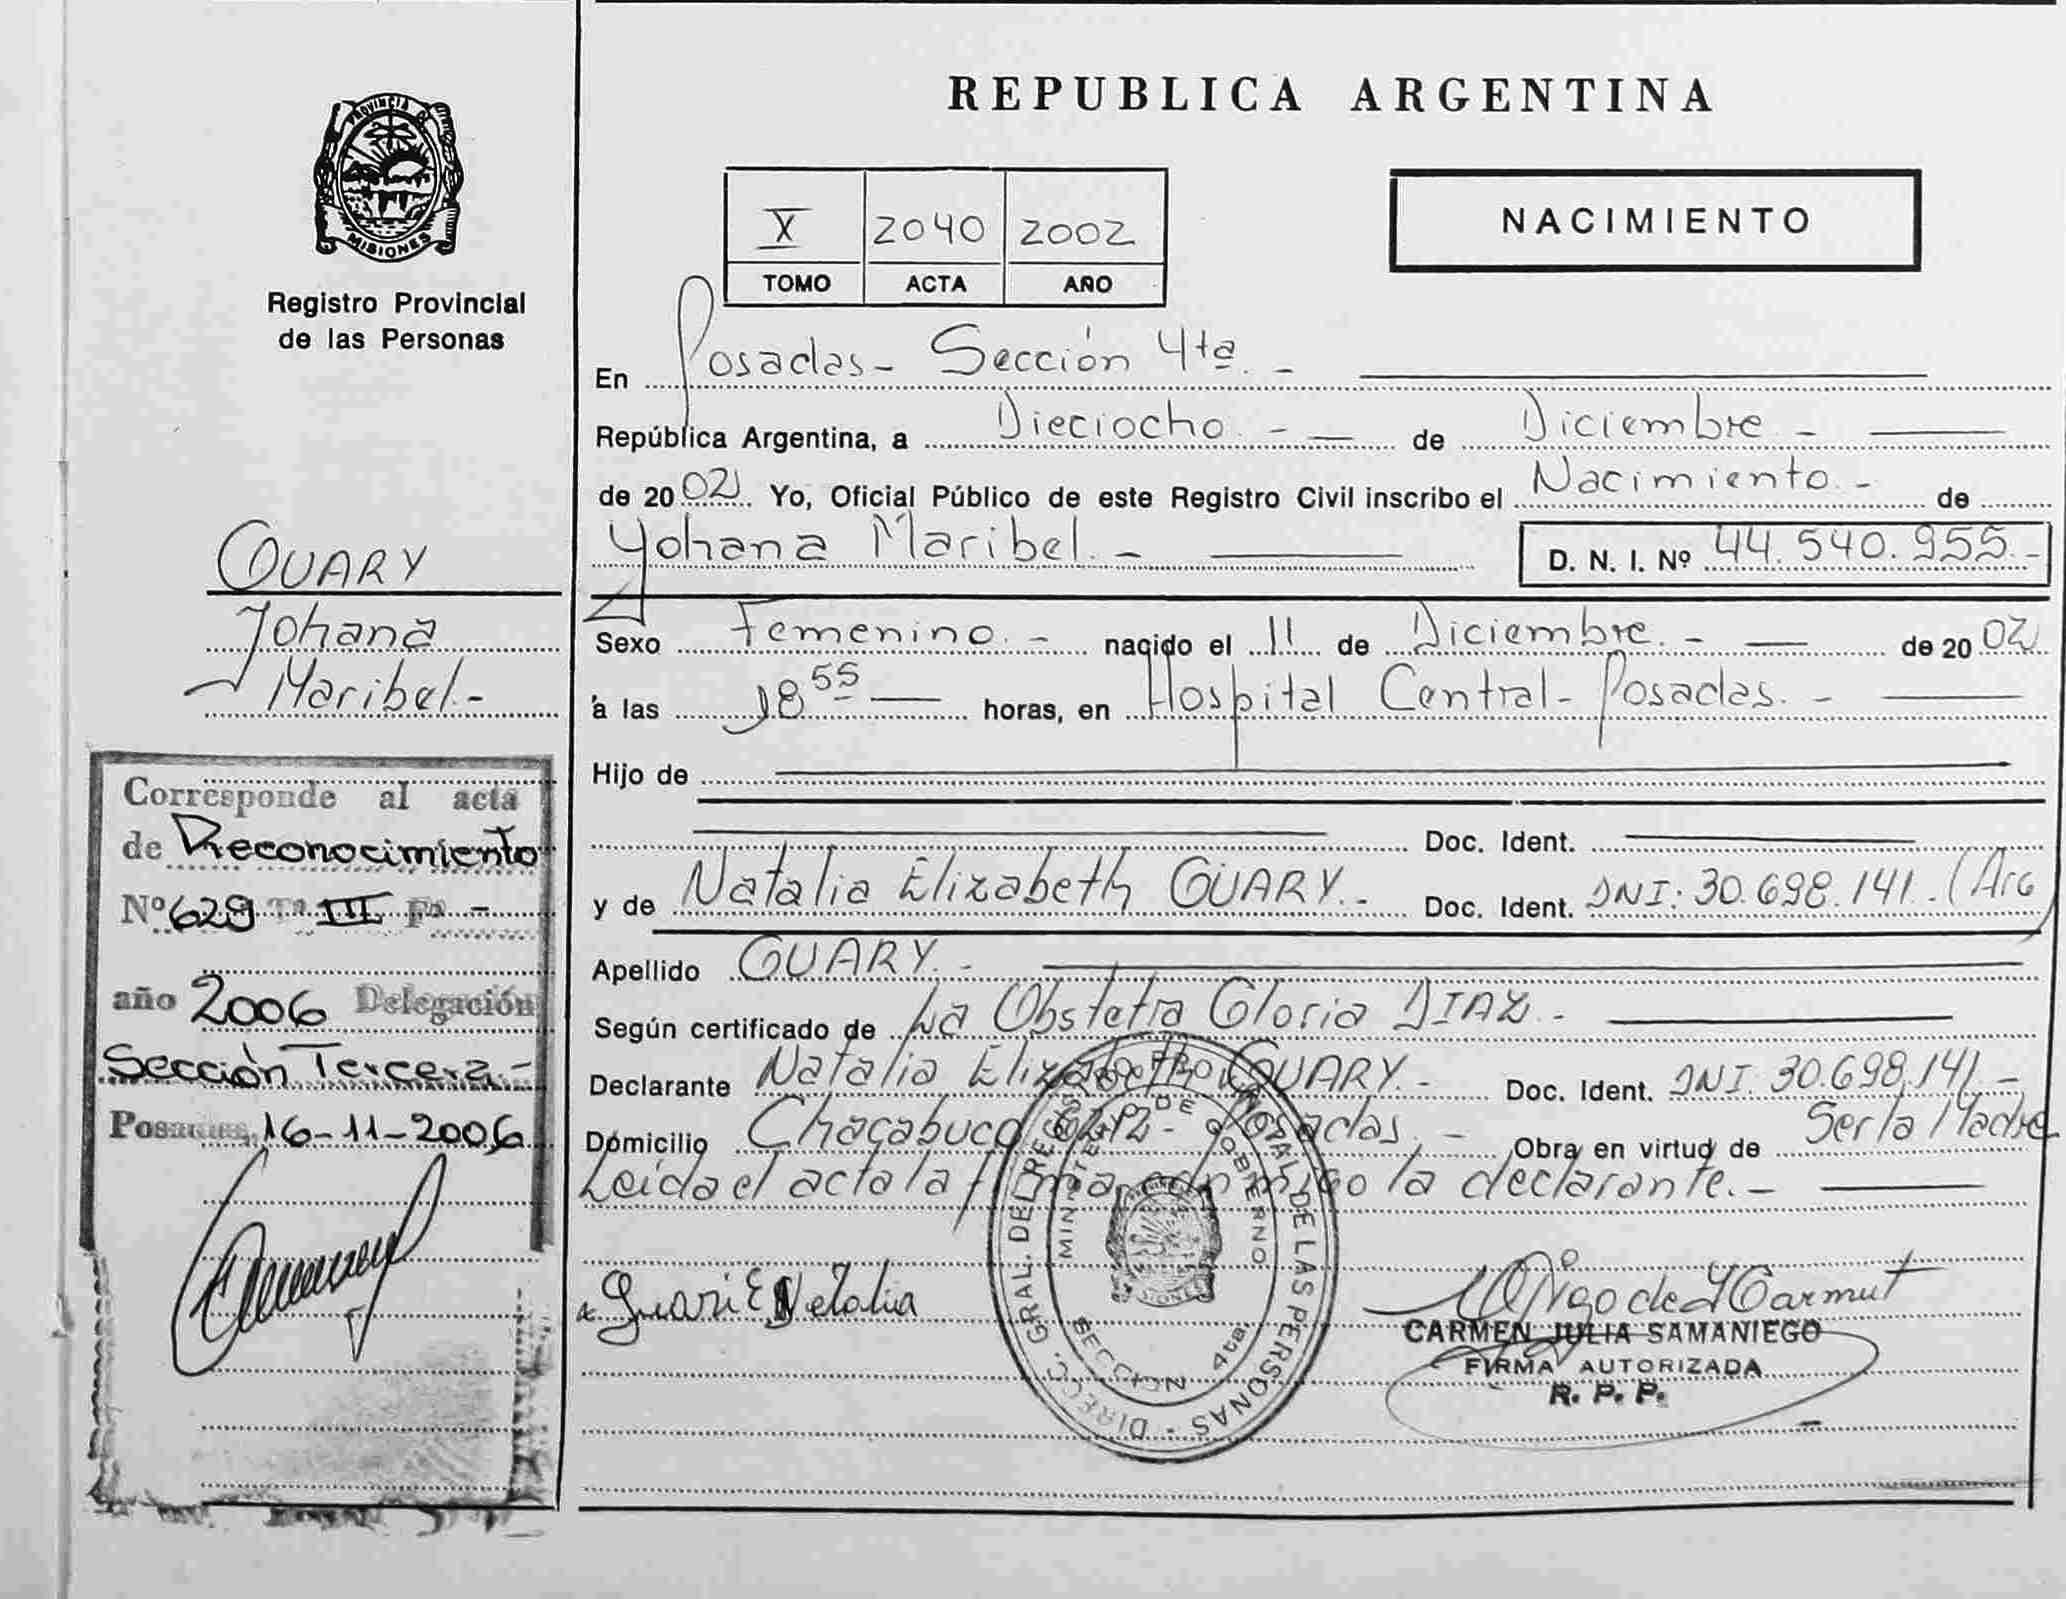 PROVINCIA DE
MISIONES
Registro Provincial
de las Personas
GUARY
Yohana
Maribel.-
Corresponde al acta
de Reconocimiento
Nº 629 Tº III Fº -
año 2006 Delegación
Sección Tercera.-
Posadas, 16-11-2006
REPUBLICA ARGENTINA
X 2040 2002
TOMO ACTA AÑO
NACIMIENTO
En Posadas- Sección 4ta. -
República Argentina, a Dieciocho. - de Diciembre -
de 20 02 Yo, Oficial Público de este Registro Civil inscribo el Nacimiento. - de
Yohana Maribel. - D. N. I. Nº 44.540.955.-
Sexo Femenino. - nacido el 11 de Diciembre. - de 20 02
a las 18 55 horas, en Hospital Central- Posadas. -
Hijo de
Doc. Ident.
y de Natalia Elizabeth GUARY.- Doc. Ident. DNI: 30.698.141. (Arg
Apellido GUARY. -
Según certificado de La Obstetra Gloria DIAZ. -
Declarante Natalia Elizabeth GUARY. - Doc. Ident. DNI. 30.698.141. -
Domicilio Chacabuco Posadas. - Obra en virtud de Ser la Madre
Leida el acta la firma conmigo la declarante. -
Guari E Natalia
DIRECC. GRAL. DEL REGISTRO PROVINCIAL DE LAS PERSONAS -
MINISTERIO DE GOBIERNO
MISIONES
SECCION 4ta
CARMEN JULIA SAMANIEGO
FIRMA AUTORIZADA
R. P. P.